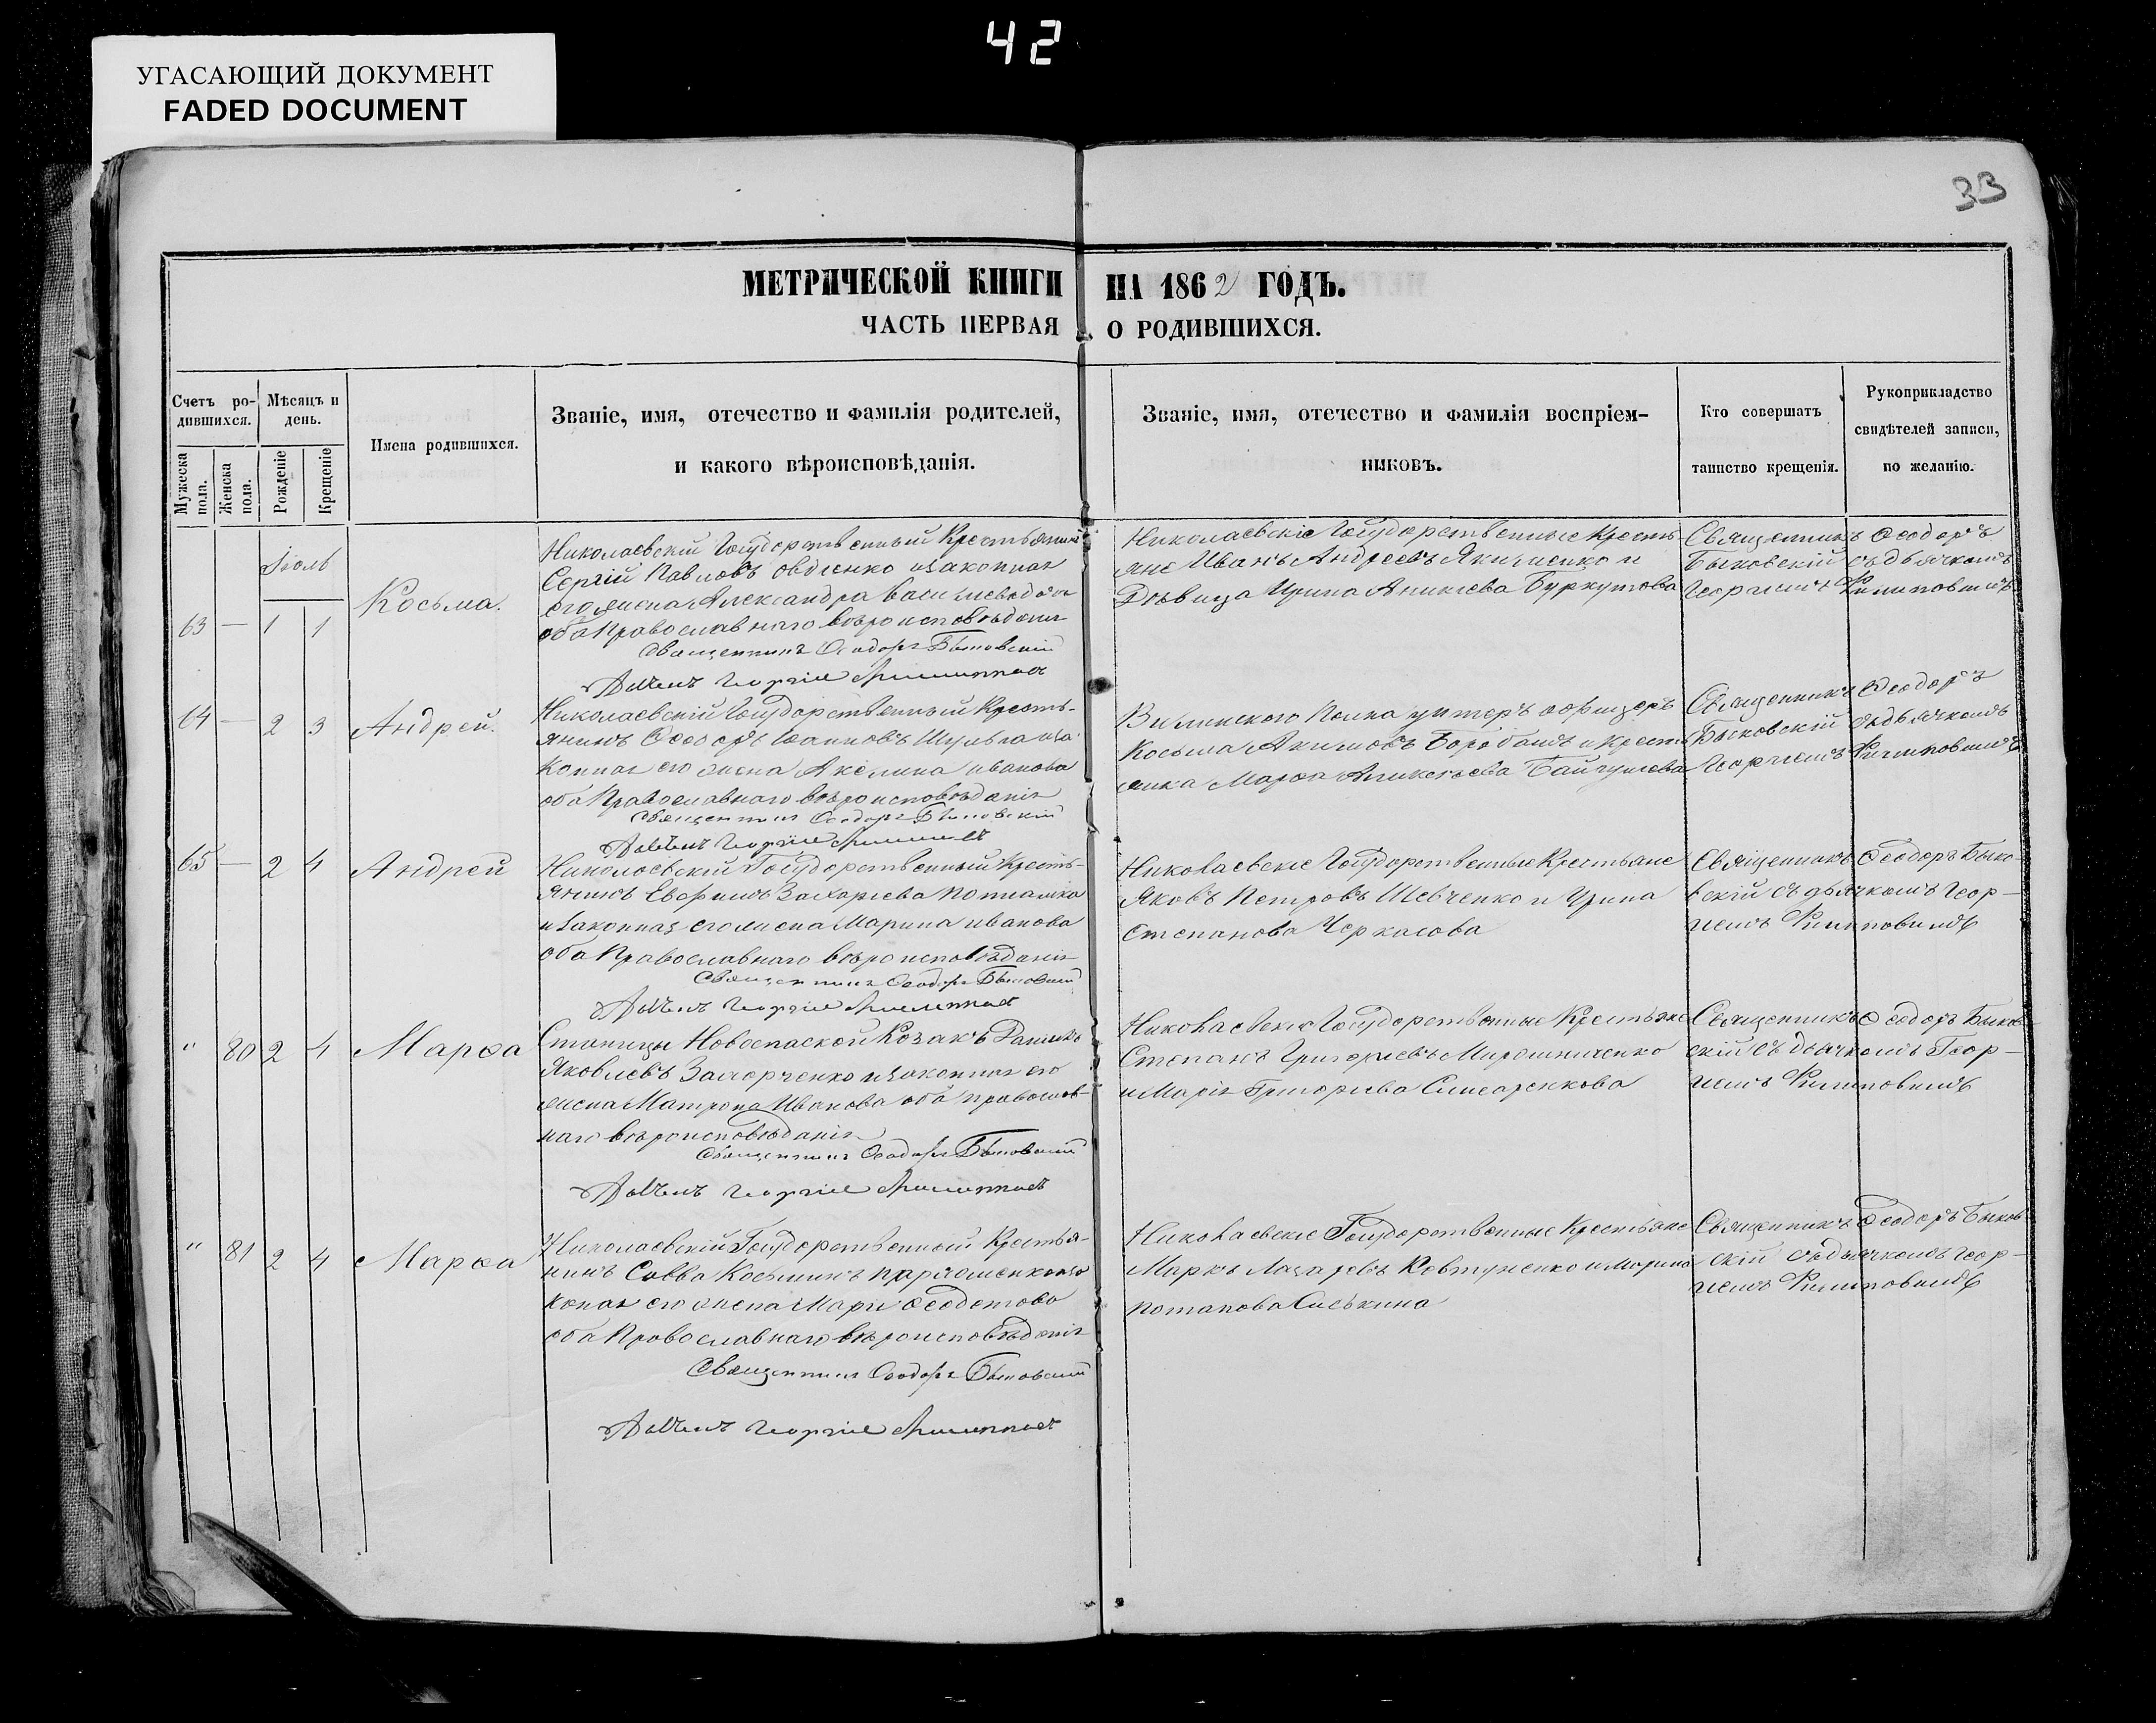 42
УГАСАЮЩИЙ ДОКУМЕНТ
FADED DOCUMENT
33
МЕТРИЧЕСКОЙ КНИГИ НА 1862 ГОДЪ.
ЧАСТЬ ПЕРВАЯ О РОДИВШИХСЯ.
Счетъ ро-
дившихся.
Мужеска пола.
Женска пола.
Мѣсяцъ и
день.
Рожденіе
Крещеніе
Имена родившихся.
Званіе, имя, отечество и фамилія родителей,
и какого вѣроисповѣданія.
Званіе, имя, отечество и фамилія воспріем-
никовъ.
Кто совершатъ
таинство крещенія.
Рукоприкладство
свидѣтелей записи,
по желанію.
Іюль
63 — 1 1
Косьма.
Николаевскій Государственный Крестьянинъ
Сергій Павловъ Овдіенко и законная
его жена Александра Васильева
оба Православнаго вѣроисповѣданія
Священникъ Ѳеодоръ Быковскій
Николаевскіе Государственные Кресть
яне Иванъ Андреевъ Якименко и
Дѣвица Ирина Аникіева Буркутова
Священникъ Ѳеодоръ
Быковскій съ дьячкомъ
Георгіемъ
64 — 2 3
Андрей.
Николаевскій Государственный Кресть-
янинъ Ѳеодоръ Іоанновъ и за
конная его жена Акелина иванова
оба Православнаго вѣроисповѣданія
Священникъ Ѳеодоръ Быковскій
Виленского Полка унтеръ офицеръ
Косьма Акимовъ Барабашъ и Кресть
янка Марѳа Аникіева
Священникъ Ѳеодоръ
Быковскій съ дьячкомъ
Георгіемъ
65 — 2 4
Андрей
Николаевскій Государственный Кресть-
янинъ Евфимъ Захаріева
и законная его жена Марина иванова
оба Православнаго вѣроисповѣданія
Священникъ Ѳеодоръ Быковскій
Николаевскіе Государственные Крестьяне
Яковъ Петровъ Шевченко и Ирина
Степанова Черкасова
Священникъ Ѳеодоръ Быко-
вскій съ дьячкомъ Геор-
гіемъ
" 80 2 4
Марѳа
Станицы Новоспаской Козакъ Даніилъ
Яковлевъ и законная его
жена Матрона Иванова оба православ-
наго вѣроисповѣданія
Священникъ Ѳеодоръ Быковскій
Николаевскіе Государственные Крестьяне
Степанъ Григорьевъ Мирошниченко
и Марія Григорьева
Священникъ Ѳеодоръ Быков-
скій съ дьячкомъ Геор-
гіемъ
" 81 2 4
Марѳа
Николаевскій Государственный Крестья-
нинъ Савва Косьминъ и за
конная его жена Марія Ѳеодотова
оба Православнаго вѣроисповѣданія
Священникъ Ѳеодоръ Быковскій
Николаевскіе Государственные Крестьяне
Маркъ Лазаревъ Ковтуненко и Марина
потапова
Священникъ Ѳеодоръ Быков-
скій съ дьячкомъ Геор-
гіемъ